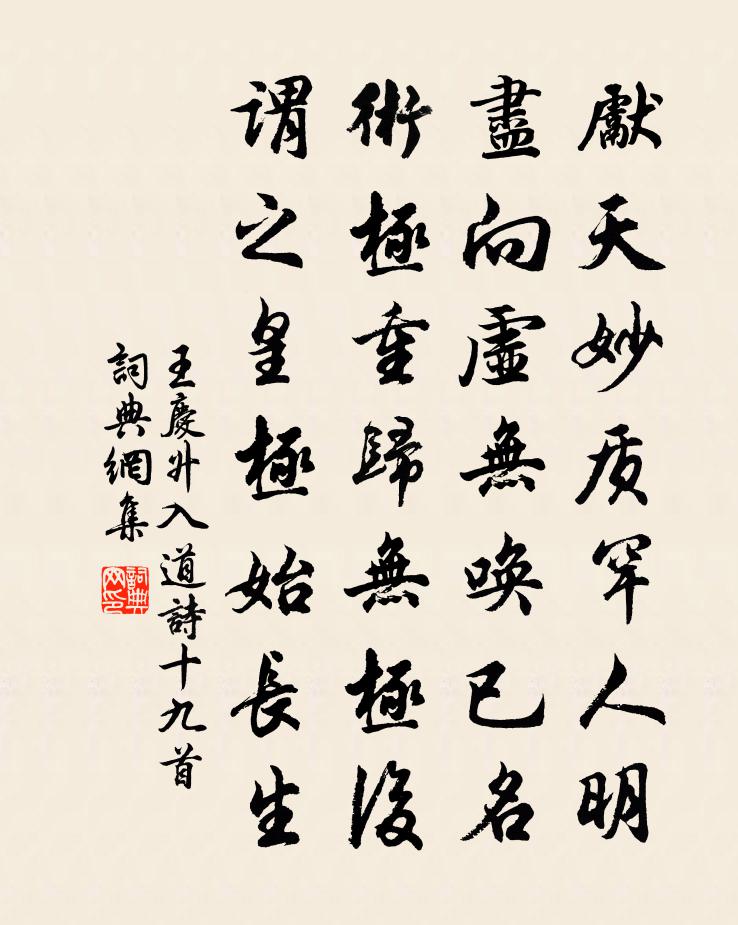 獻天妙质罕人明
盡向虛無喚已名
術極重歸無極後
謂之皇極始長生
王慶升入道詩十九首
詞典網集
詞典网印